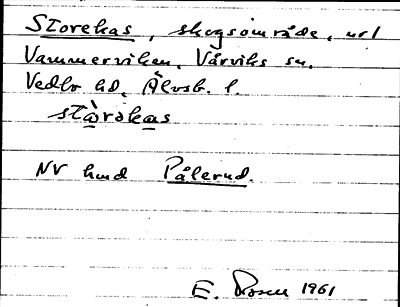 Storekas, skogsområde, url
Vammerviken, Vårviks sn,
Vedbo hd, Älvsb. l.
stòrəkas
NV hmd Pålerud.
E. 1961